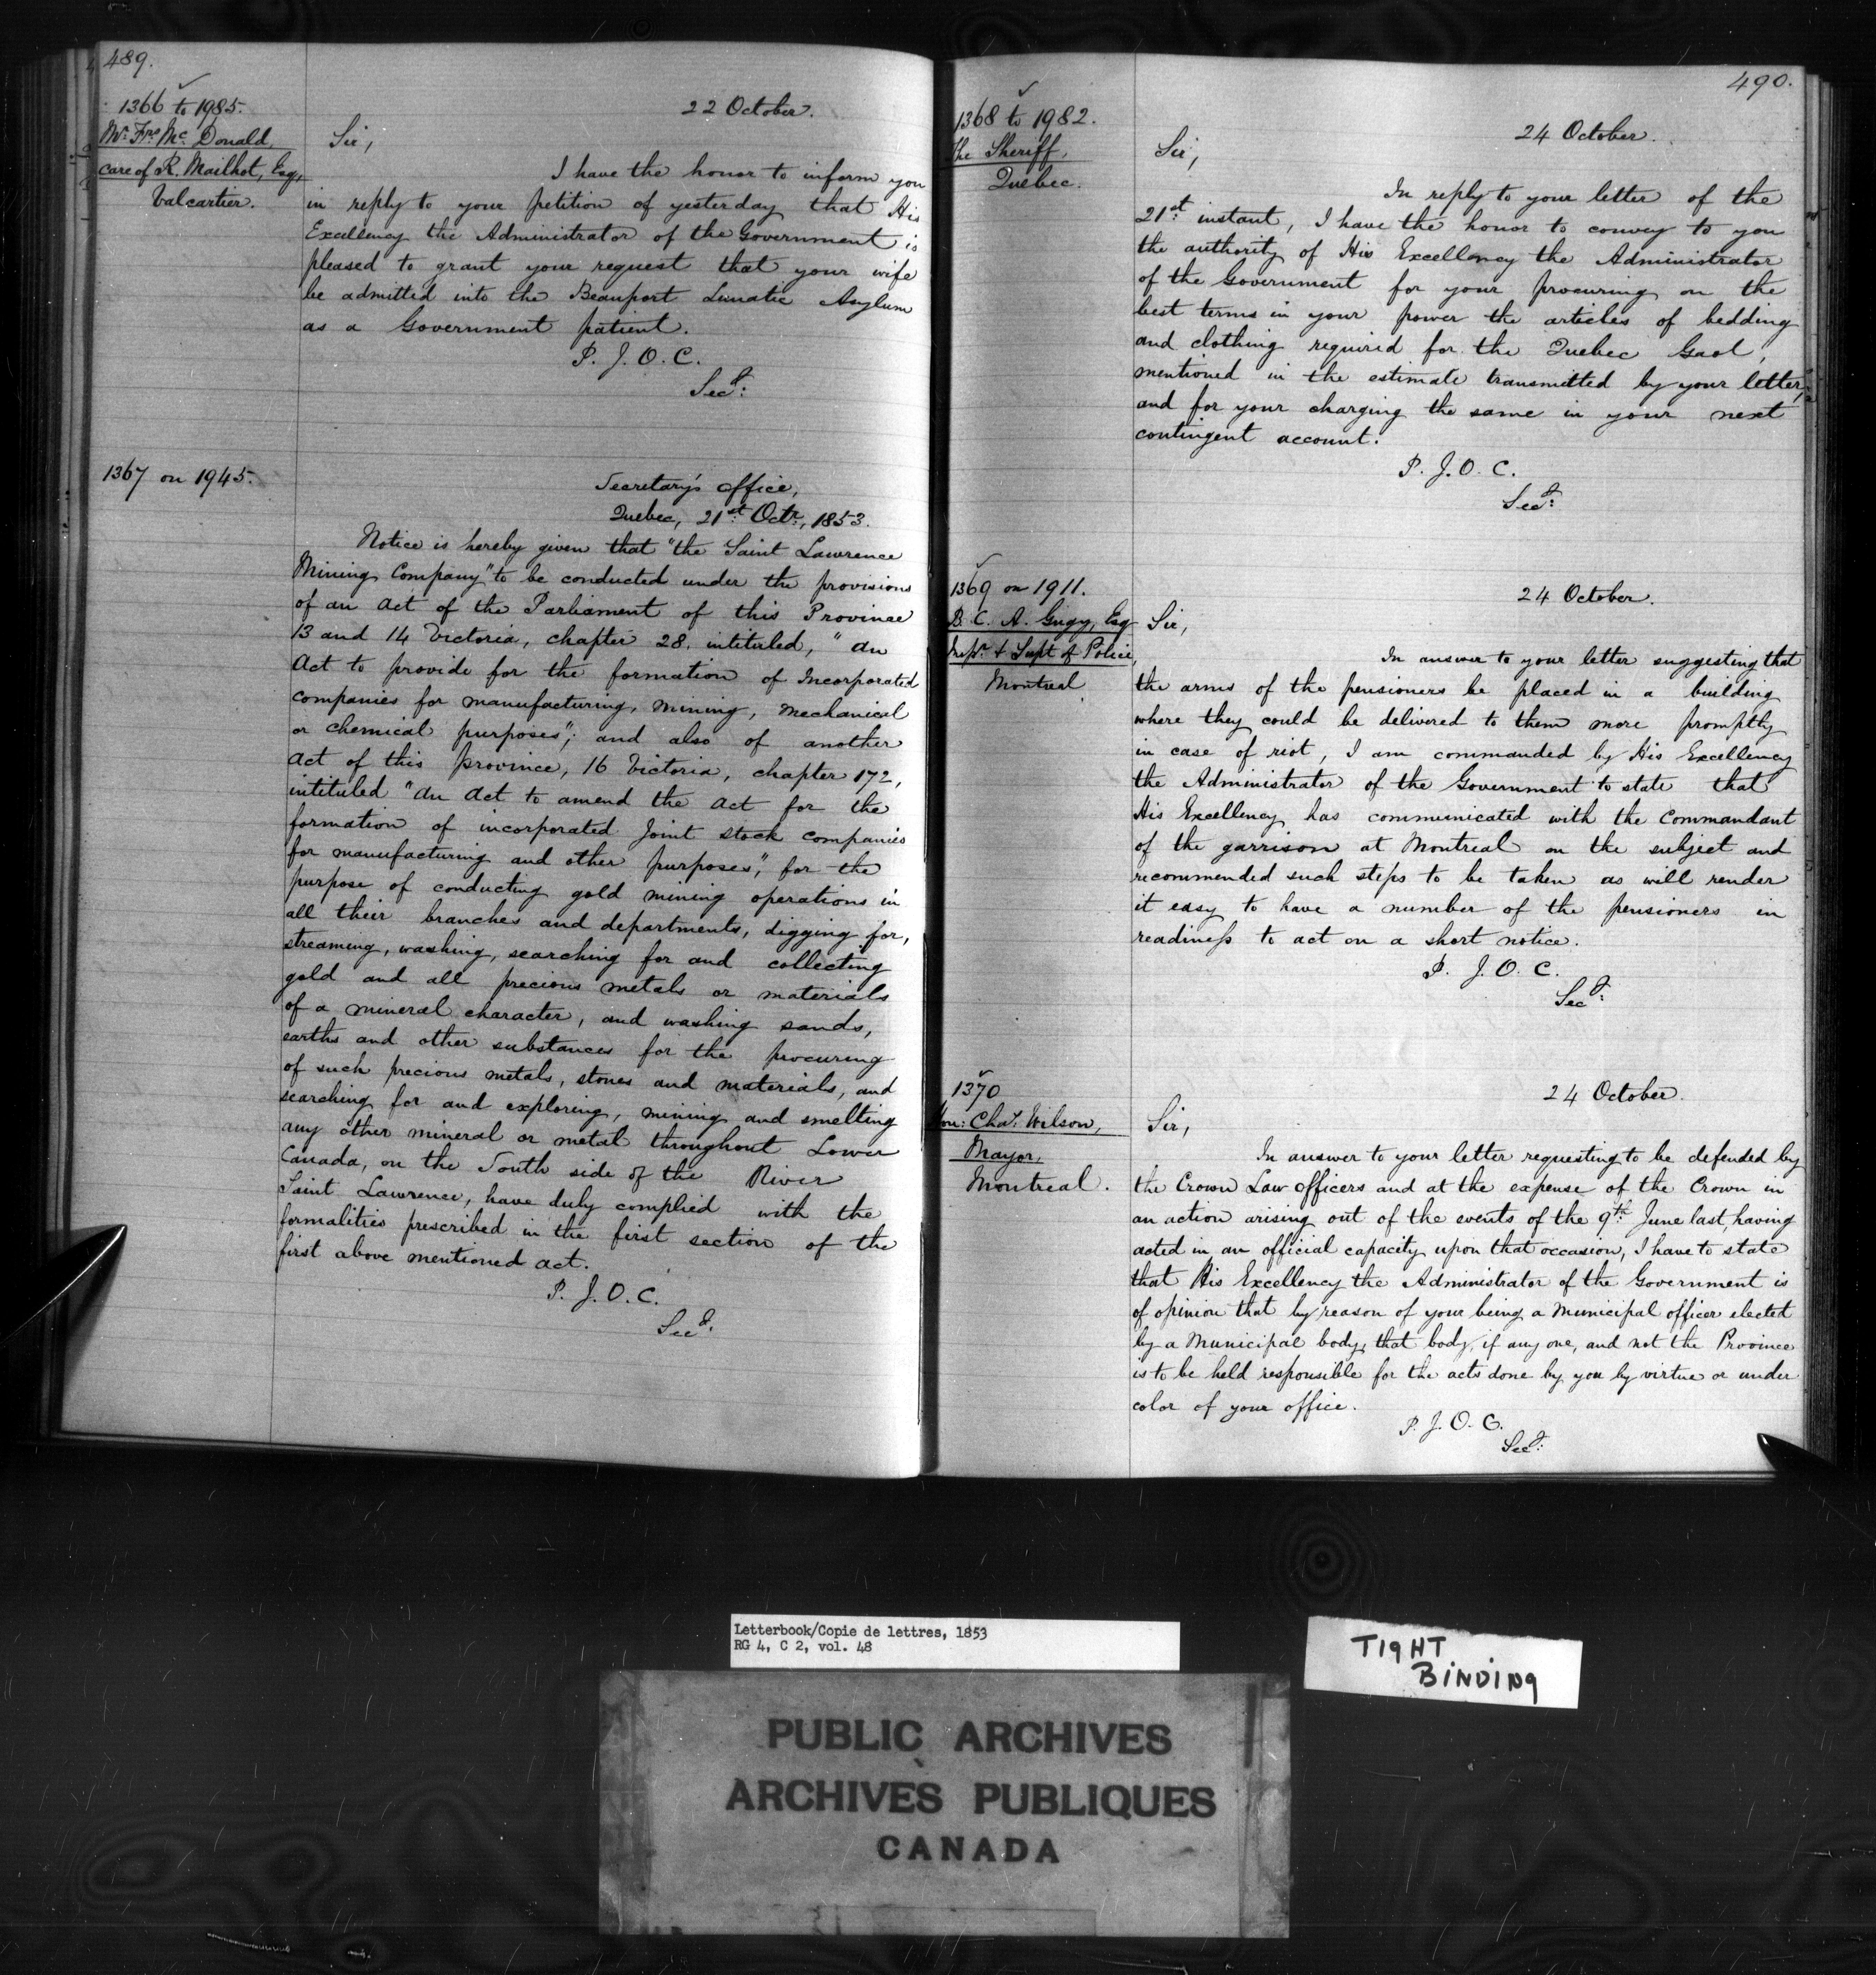 489.
1366 to 1985.
Mr. Frs. Mc Donald,
care of R. Mailhot, Esq,
Valcartier.
22 October.
Sir,
I have the honor to inform you
in reply to your petition of yesterday that His
Excellency the Administrator of the Government is
pleased to grant your request that your wife
be admitted into the Beauport Lunatic Asylum
as a Government patient.
P. J. O. C.
Secy.
1367 on 1945.
Secretary's office,
Quebec, 21st. Octr., 1853.
Notice is hereby given that "the Saint Lawrence
Mining Company" to be conducted under the provisions
of an act of the Parliament of this Province
13 and 14 Victoria, chapter 28. intituled, "an
Act to provide for the formation of Incorporated
companies for manufacturing, mining, mechanical
or chemical purposes"; and also of another
act of this province, 16 Victoria, chapter 172,
intituled "an act to amend the act for the
formation of incorporated Joint stock companies
for manufacturing and other purposes", for the
purpose of conducting gold mining operations in
all their branches and departments, digging for,
streaming, washing, searching for and collecting
gold and all precious metals or materials
of a mineral character, and washing sands,
earths and other substances for the procuring
of such precious metals, stones and materials, and
searching for and exploring, mining and smelting
any other mineral or metal throughout Lower
Canada, on the South side of the River
Saint Lawrence, have duly complied with the
formalities prescribed in the first section of the
first above mentioned act.
P. J. O. C.
Secy.
490.
1368 to 1982.
The Sheriff,
Quebec.
24 October.
Sir,
In reply to your letter of the
21st. instant, I have the honor to convey to you
the authority of His Excellency the Administrator
of the Government for your procuring on the
best terms in your power the articles of bedding
and clothing required for the Quebec Gaol,
mentioned in the estimate transmitted by your letter,
and for your charging the same in your next
contingent account.
P. J. O. C.
Secy:
1369 on 1911.
B. C. A. Gugy, Esq
Inspr. & Supt of Police,
Montreal
24 October.
Sir,
In answer to your letter suggesting that
the arms of the pensioners be placed in a building
where they could be delivered to them more promptly
in case of riot, I am commanded by His Excellency
the Administrator of the Government to state that
His Excellency has communicated with the Commandant
of the garrison at Montreal on the subject and
recommended such steps to be taken as will render
it easy to have a number of the pensioners in
readiness to act on a short notice.
P. J. O. C.
Secy:
1370
Hon: Chas. Wilson,
Mayor,
Montreal.
24 October.
Sir,
In answer to your letter requesting to be defended by
the Crown Law officers and at the expense of the Crown in
an action arising out of the events of the 9th. June last, having
acted in an official capacity upon that occasion, I have to state
that His Excellency the Administrator of the Government is
of opinion that by reason of your being a Municipal officer elected
by a Municipal body, that body, if any one, and not the Province
is to be held responsible for the acts done by you by virtue or under
color of your office.
P. J. O. C.
Secy:
Letterbook/Copie de lettres, 1853
RG 4, C 2, vol. 48
TIGHT
BINDING
PUBLIC ARCHIVES
ARCHIVES PUBLIQUES
CANADA